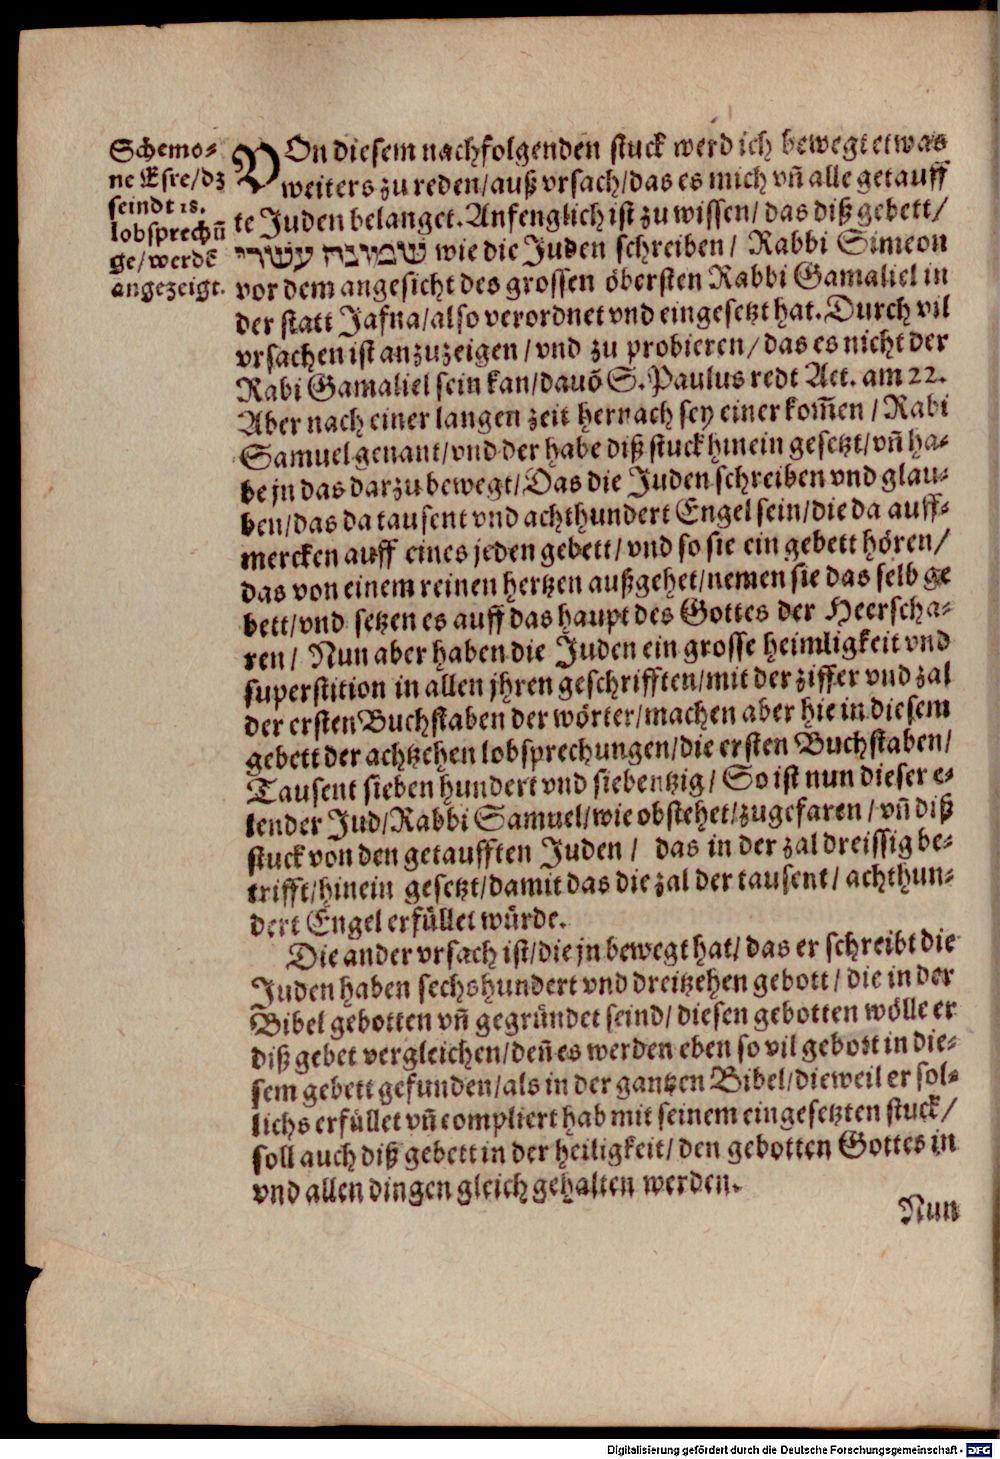 Schemo-
ne Esre/dz
seindt 18.
lobsprechū
ge/werdē
angezeigt.
VOn diesem nachfolgenden stuck werd ich bewegt etwas
weiters zu reden/auß vrsach/das es mich vñ alle getauff
te Juden belanget. Anfenglich ist zu wissen/ das diß gebett/
שמונה עשרי wie die Juden schreiben/ Rabbi Simeon
vor dem angesicht des grossen öbersten Rabbi Gamaliel in
der statt Jafna/also verordnet vnd eingesetzt hat. Durch vil
vrsachen ist anzuzeigen/vnd zu probieren/das es nicht der
Rabi Gamaliel sein kan/dauō S. Paulus redt Act. am 22.
Aber nach einer langen zeit hernach sey einer kom̄en/Rabi
Samuel genant/vnd der habe diß stuck hinein gesetzt/vñ ha-
be jn das darzu bewegt/Das die Juden schreiben vnd glau-
ben/das da tausent vnd achthundert Engel sein/die da auff-
mercken auff eines jeden gebett/vnd so sie ein gebett hören/
das von einem reinen hertzen außgehet/nemen sie das selb ge
bett/vnd setzen es auff das haupt des Gottes der Heerscha-
ren/ Nun aber haben die Juden ein grosse heimligkeit vnd
superstition in allen jhren geschrifften/mit der ziffer vnd zal
der ersten Buchstaben der wörter/machen aber hie in diesem
gebett der achtzehen lobsprechungen/die ersten Buchstaben/
Tausent sieben hundert vnd siebentzig/ So ist nun dieser e-
lender Jud/Rabbi Samuel/wie obstehet/zugefaren/vñ diß
stuck von den getaufften Juden/ das in der zal dreissig be-
trifft/hinein gesetzt/damit das die zal der tausent/achthun-
dert Engel erfüllet würde.
Die ander vrsach ist/die jn bewegt hat/das er schreibt die
Juden haben sechshundert vnd dreitzehen gebott/die in der
Bibel gebotten vñ gegründet seind/diesen gebotten wölle er
diß gebet vergleichen/deñ es werden eben so vil gebott in die-
sem gebett gefunden/als in der gantzen Bibel/dieweil er sol-
lichs erfüllet vñ compliert hab mit seinem eingesetzten stuck/
soll auch diß gebett in der heiligkeit/den gebotten Gottes in
vnd allen dingen gleich gehalten werden.
Nun
Digitalisierung gefördert durch die Deutsche Forschungsgemeinschaft - DFG